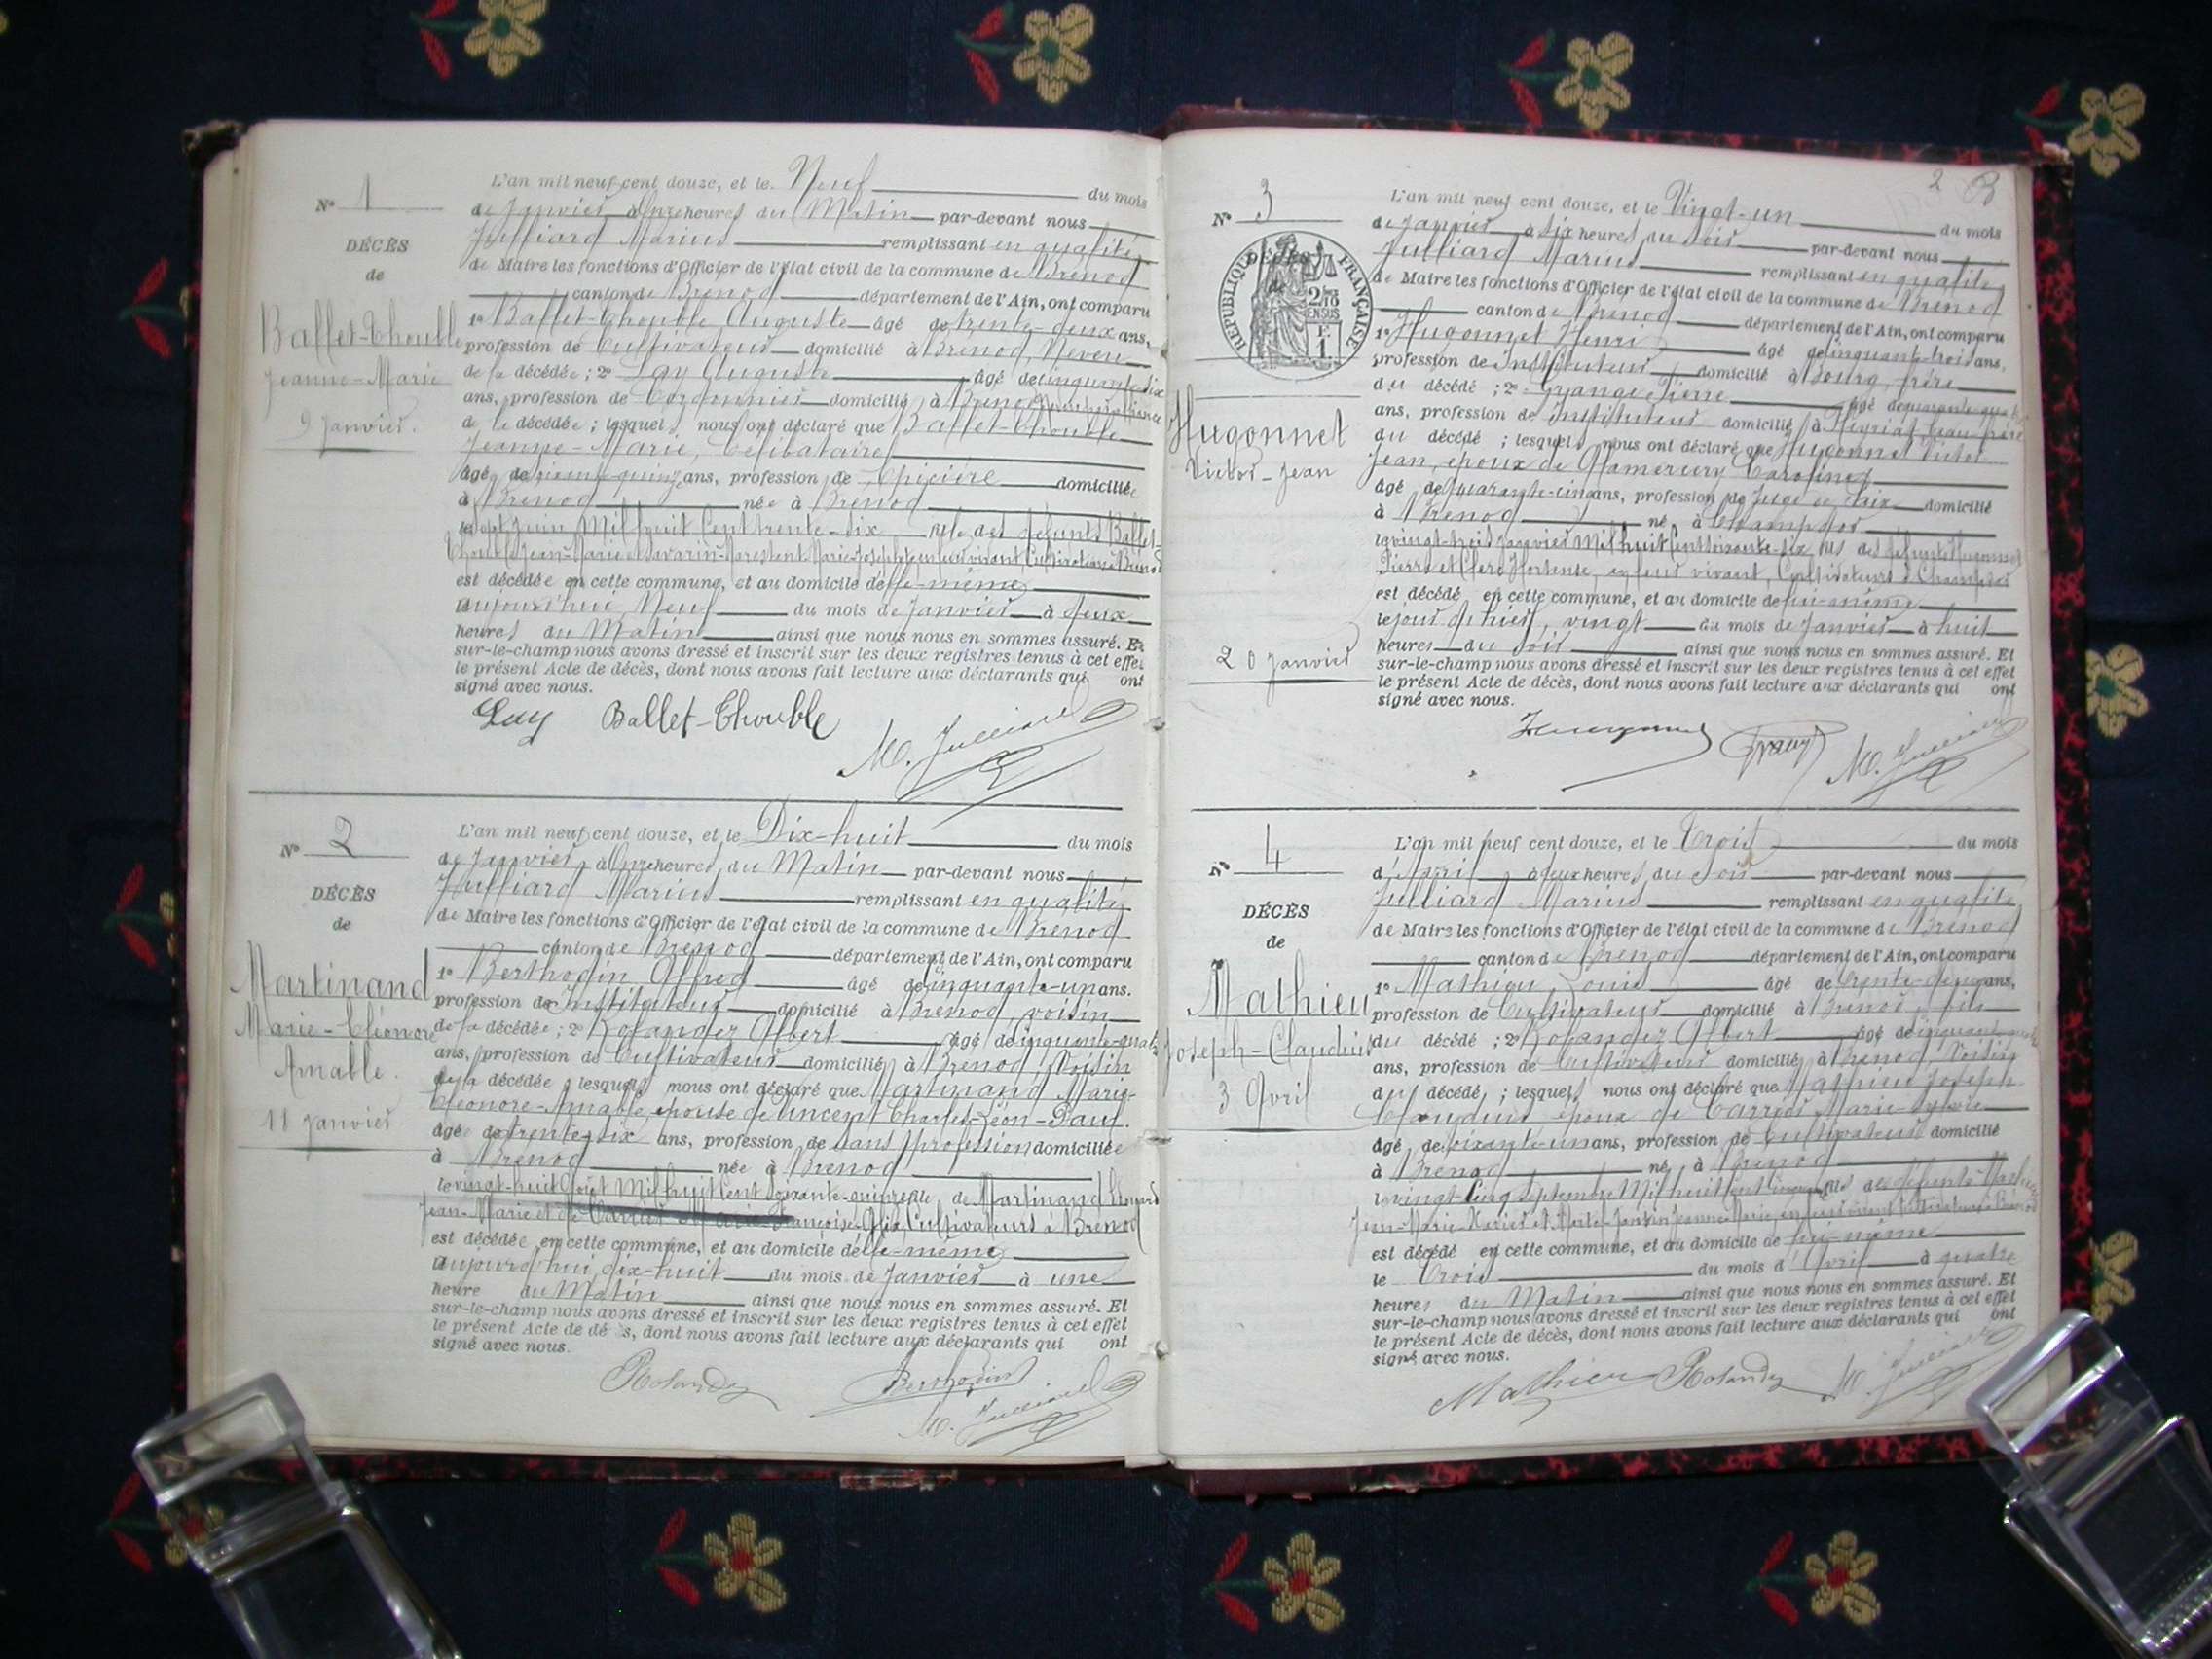 N° 1
DÉCÈS
de
Ballet-Thouble
Jeanne-Marie
9 Janvier.
L'an mil neuf cent douze, et le Neuf du mois
de Janvier à Onze heures du Matin par-devant nous
Julliard Marius remplissant en qualité
de Maire les fonctions d'Officier de l'état civil de la commune de Brénod
canton de Brénod département de l'Ain, ont comparu
1° Ballet-Thouble Auguste âgé de trente-deux ans,
profession de Cultivateur domicilié à Brénod, Neveu
de la décédée; 2° Lay Auguste âgé de cinquante-six
ans, profession de Cordonnier domicilié à Brénod
de la décédée; lesquels nous ont déclaré que Ballet-Thouble
Jeanne-Marie, Célibataire
âgée de soixante-quinze ans, profession de Epicière domiciliée
à Brénod née à Brénod
le sept Juin Mil huit Cent trente-six fille des défunts Ballet-
Thouble Jean-Marie et Marie-Josephte en leur vivant, Cultivateurs à Brénod
est décédée en cette commune, et au domicile d'elle-même
aujourd'hui, Neuf du mois de Janvier à deux
heures du Matin ainsi que nous nous en sommes assuré. Et
sur-le-champ nous avons dressé et inscrit sur les deux registres tenus à cet effet
le présent Acte de décès, dont nous avons fait lecture aux déclarants qui ont
signé avec nous.
Lay Ballet-Thouble
M. Julliard
N° 2
DÉCÈS
de
Martinand
Marie-Cléonore
Amable.
11 Janvier
L'an mil neuf cent douze, et le Dix-huit du mois
de Janvier à Onze heures du Matin par-devant nous
Julliard Marius remplissant en qualité
de Maire les fonctions d'Officier de l'état civil de la commune de Brénod
canton de Brénod département de l'Ain, ont comparu
1° Berthodin Alfred âgé de cinquante-un ans.
profession de Instituteur domicilié à Brénod, voisin
de la décédée; 2° Rolandez Albert âgé de cinquante-quatre
ans, profession de Cultivateur domicilié à Brénod, Voisin
de la décédée; lesquels nous ont déclaré que Martinand Marie-
Cléonore-Amable, épouse de Vincent Charles-Léon-Paul.
âgée de trente-six ans, profession de sans profession domiciliée
à Brénod née à Brénod
le vingt-huit Août Mil huit Cent Soixante-quinze fille de Martinand
Jean-Marie et de Françoise-Alix, Cultivateurs à Brénod
est décédée en cette commune, et au domicile d'elle-même
aujourd'hui, dix-huit du mois de Janvier à une
heure du Matin ainsi que nous nous en sommes assuré. Et
sur-le-champ nous avons dressé et inscrit sur les deux registres tenus à cet effet
le présent Acte de décès, dont nous avons fait lecture aux déclarants qui ont
signé avec nous.
Rolandez Berthodin
M. Julliard
2
N° 3
RÉPUBLIQUE FRANÇAISE
Hugonnet
Victor-Jean
20 Janvier
L'an mil neuf cent douze, et le Vingt-un du mois
de Janvier à six heures du soir par-devant nous
Julliard Marius remplissant en qualité
de Maire les fonctions d'Officier de l'état civil de la commune de Brénod
canton de Brénod département de l'Ain, ont comparu
1° Hugonnet Henri âgé de cinquante-trois ans,
profession de Instituteur domicilié à Bourg, frère
du décédé; 2° Grange Pierre âgé de quarante-quatre
ans, profession de Instituteur domicilié à Meyriat, beau-frère
du décédé; lesquels nous ont déclaré que Hugonnet Victor
Jean, époux de Caroline
âgé de quarante-cinq ans, profession de Juge de Paix domicilié
à Brénod né à Champdor
le vingt-trois Janvier Mil huit Cent soixante-six, fils des défunts Hugonnet
Pierre et Clerc Hortense, en leur vivant, Cultivateurs à Champdor
est décédé en cette commune, et au domicile de lui-même
le jour d'hier, vingt du mois de Janvier à huit
heures du soir ainsi que nous nous en sommes assuré. Et
sur-le-champ nous avons dressé et inscrit sur les deux registres tenus à cet effet
le présent Acte de décès, dont nous avons fait lecture aux déclarants qui ont
signé avec nous.
M. Julliard
N° 4
DÉCÈS
de
Mathieu
Joseph-Claudius
3 Avril
L'an mil neuf cent douze, et le Trois du mois
d'Avril à deux heures du Soir par-devant nous
Julliard Marius remplissant en qualité
de Maire les fonctions d'Officier de l'état civil de la commune de Brénod
canton de Brénod département de l'Ain, ont comparu
1° Mathieu Louis âgé de trente-deux ans,
profession de Cultivateur domicilié à Brénod, fils
du décédé; 2° Rolandez Albert âgé de cinquante-quatre
ans, profession de Cultivateur domicilié à Brénod, Voisin
du décédé; lesquels nous ont déclaré que Mathieu Joseph
Claudius époux de Carrier Marie-Sylvie
âgé de soixante-un ans, profession de Cultivateur domicilié
à Brénod né à Brénod
le vingt-Cinq Septembre Mil huit cent cinquante fils des défunts Mathieu
Jean-Marie-Xavier et Jeanne-Marie, en leur vivant Cultivateurs à Brénod
est décédé en cette commune, et au domicile de lui-même
le Trois du mois d'Avril à quatre
heures du Matin ainsi que nous nous en sommes assuré. Et
sur-le-champ nous avons dressé et inscrit sur les deux registres tenus à cet effet
le présent Acte de décès, dont nous avons fait lecture aux déclarants qui ont
signé avec nous.
Mathieu Rolandez M. Julliard